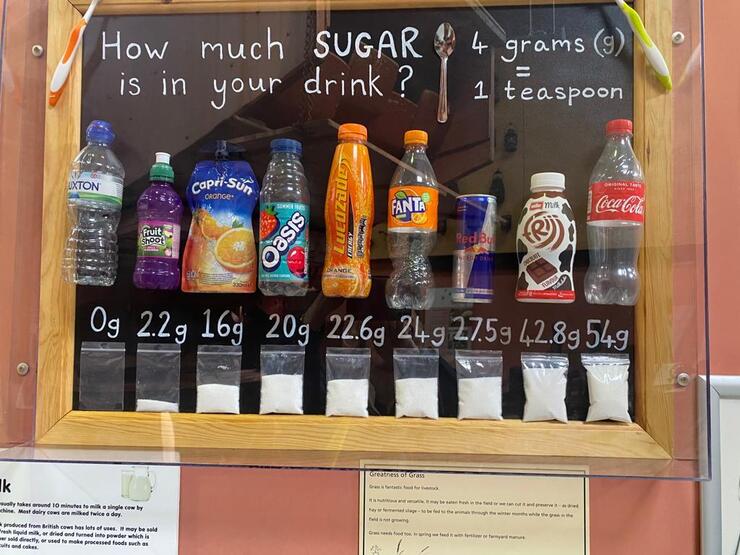 How much SUGAR
is in your drink?
4 grams (g)
=
1 teaspoon
UXTON
Fruit
Shoot
Capri-Sun
Orange
SUMMER FRUITS
Oasis
LUCOZADE
ENERGY
ORANGE
FANTA
Red Bu
milk
FRijj
ORIGINAL TASTE
Coca-Cola
0g 2.2g 16g 20g 22.6g 24g 27.5g 42.8g 54g
lk
sually takes around 10 minutes to milk a single cow by
chine. Most dairy cows are milked twice a day.
k produced from British cows has lots of uses. It may be sold
fresh liquid milk, or dried and turned into powder which is
er sold directly, or used to make processed foods such as
cuits and cakes.
Greatness of Grass
Grass is fantastic food for livestock.
It is nutritious and versatile. It may be eaten fresh in the field or we can cut it and preserve it - as dried
hay or fermented silage - to be fed to the animals through the winter months while the grass in the
field is not growing.
Grass needs food too. In spring we feed it with fertilizer or farmyard manure.